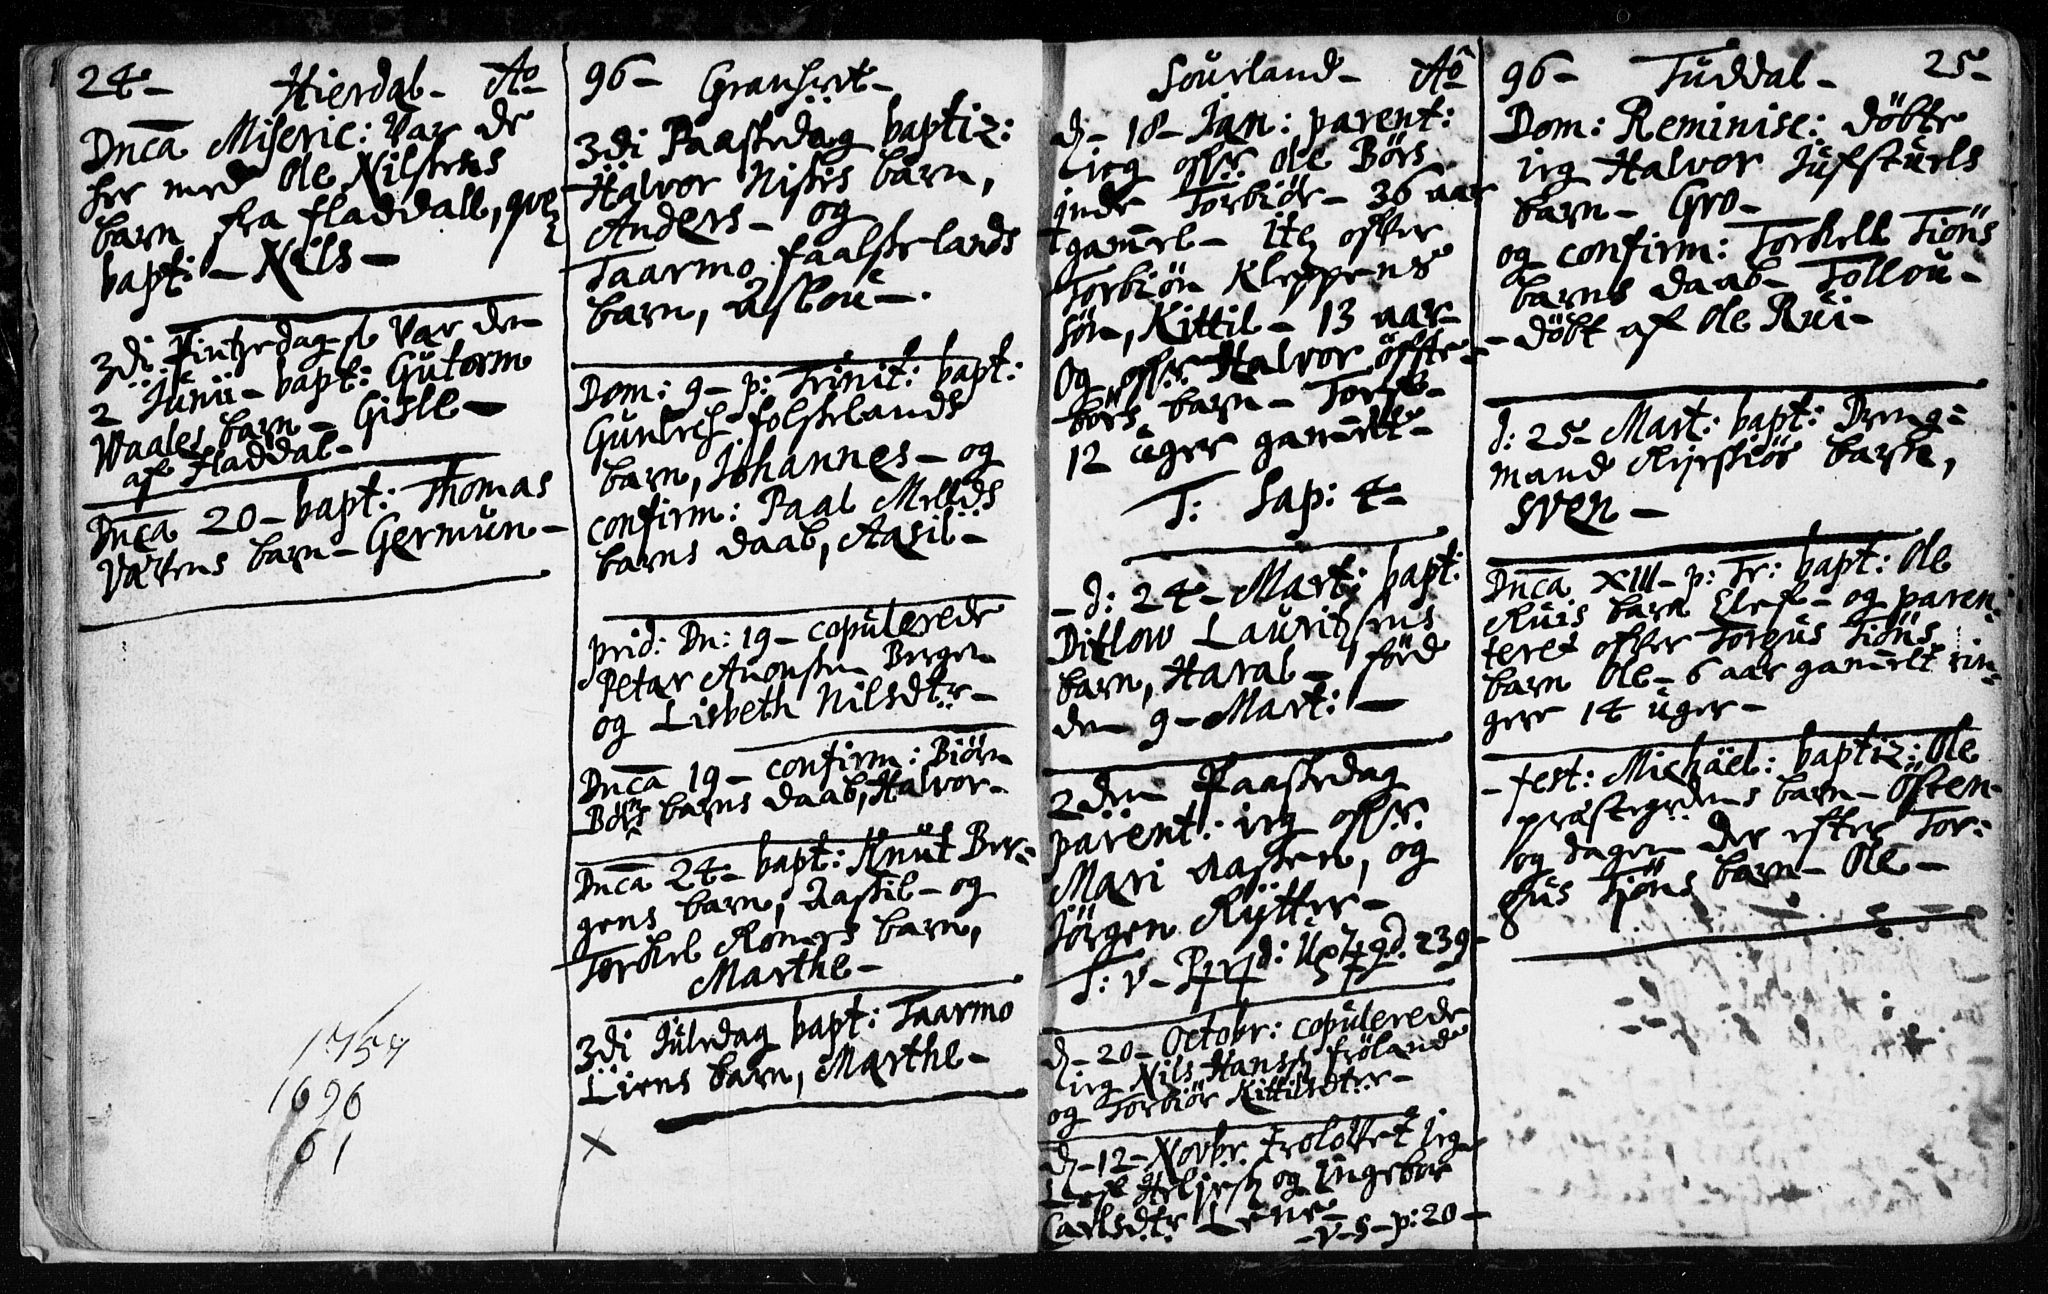 24 - Hierdal - Ao
Dnca Miseric: Var de
her med Ole Nilsens
barn fra fladdall, qvez
bapt: - Nils -
3di Pintzedag d var den
2 Junii - bapt: Gutorm
Waales barn - Gisle -
af fladdal -
Dnca 20 - bapt: Thomas
barn - Germun -
1757
1696
61
96 - Gransiert -
3di Paaskedag baptiz:
Halvor Nisis barn,
Anders - og
Taarmo faalserlands
barn, Aslou - .
Dom: 9 - p: Trinit: bapt:
barn, Johannes - og
confirm: Paal
barns daab, Aasil -
prid: Dn: 19 - copulerede
Petar
og Lisbeth Nilsdtr -
Dnca 19 - confirm: Biørn
barns daab, Halvor -
Dnca 24 - bapt: Knut Ber-
gens barn, Aassil - og
Torkel Romes barn,
Marthe -
3di Juledag bapt: Taarmo
Liens barn, Marthe -
x
Sourland - Ao
d - 18 - Jan: parent:
ieg offr Ole Børs
qvinde Torbiør - 36 aar
gamel - Itz offver
Torbiøn Kleppens
søn, Kittil - 13 aar -
Og offr Halvor
børs barn -
12 uger gamelt -
T: Sap: 4 -
- d: 24 - Mart: bapt:
Ditlow Lauritzsens
barn, Haral - føed
den 9 - Mart: -
2den Paaskedag
parent: ieg offr:
Mari Aasen, og
Jørgen Rytter -
239 -
d - 20 - Octobr: copulerede
ieg Nils Hanss frøland
og Torbiør Kittilsdter -
d - 12 - Novbr. troloffvet ieg
og Ingebor
Carlsdtr Lene -
- v - s - p: 20 -
96 - Tuddal - 25 -
Dom: Reminise: døbte
ieg Halvor
barn - Gro -
og confirm: Torkell Tiøns
barns daab - Tollou -
- døbt af Ole Rui -
d: 25 - Mart: bapt: Dreng-
mand barn,
Sven -
Dnca XIII - p: Tr: bapt: Ole
Ruis barn Elef - og paren-
teret offver Torgus Tiøns
barn Ole - 6 aar gamelt rin-
gere 14 uger -
- fest: Michäel: baptiz: Ole
præstegrdens barn - Østen -
og dagen der efter Tor:
gus Tjøns barn - Ole -